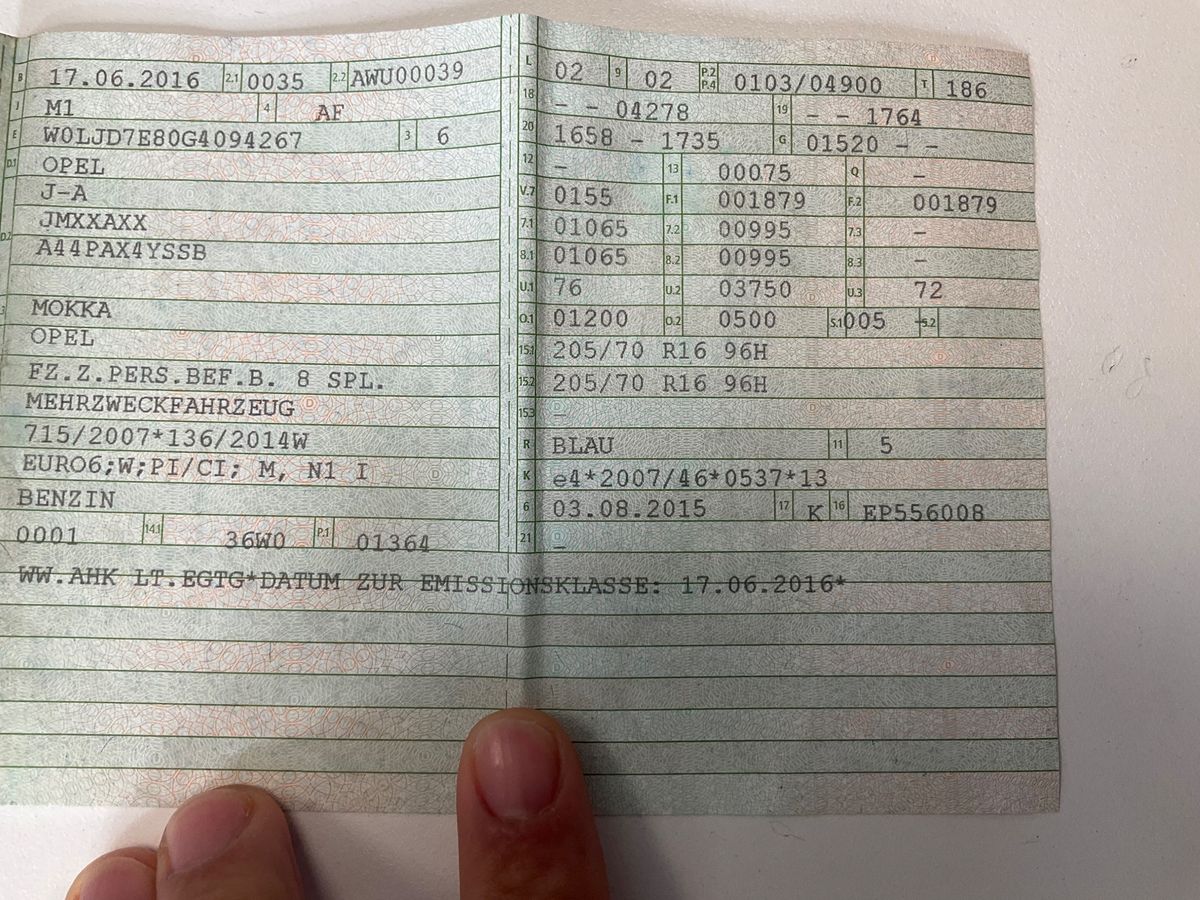 B 17.06.2016 2.1 0035 2.2 AWU00039
J M1 4 AF
E W0LJD7E80G4094267 3 6
D.1 OPEL
J-A
D.2 JMXXAXX
A44PAX4YSSB
3 MOKKA
OPEL
FZ.Z.PERS.BEF.B. 8 SPL.
MEHRZWECKFAHRZEUG
715/2007*136/2014W
EURO6;W;PI/CI; M, N1 I
BENZIN
0001 14.1 36W0 P.1 01364
L 02 9 02 P.2 P.4 0103/04900 T 186
18 - - 04278 19 - - 1764
20 1658 - 1735 G 01520 - -
12 - 13 00075 Q -
V.7 0155 F.1 001879 F.2 001879
7.1 01065 7.2 00995 7.3 -
8.1 01065 8.2 00995 8.3 -
U.1 76 U.2 03750 U.3 72
O.1 01200 O.2 0500 S.1 005 S.2 -
15.1 205/70 R16 96H
15.2 205/70 R16 96H
15.3 -
R BLAU 11 5
K e4*2007/46*0537*13
6 03.08.2015 17 K 16 EP556008
21 -
WW.AHK LT.EGTG*DATUM ZUR EMISSIONSKLASSE: 17.06.2016*